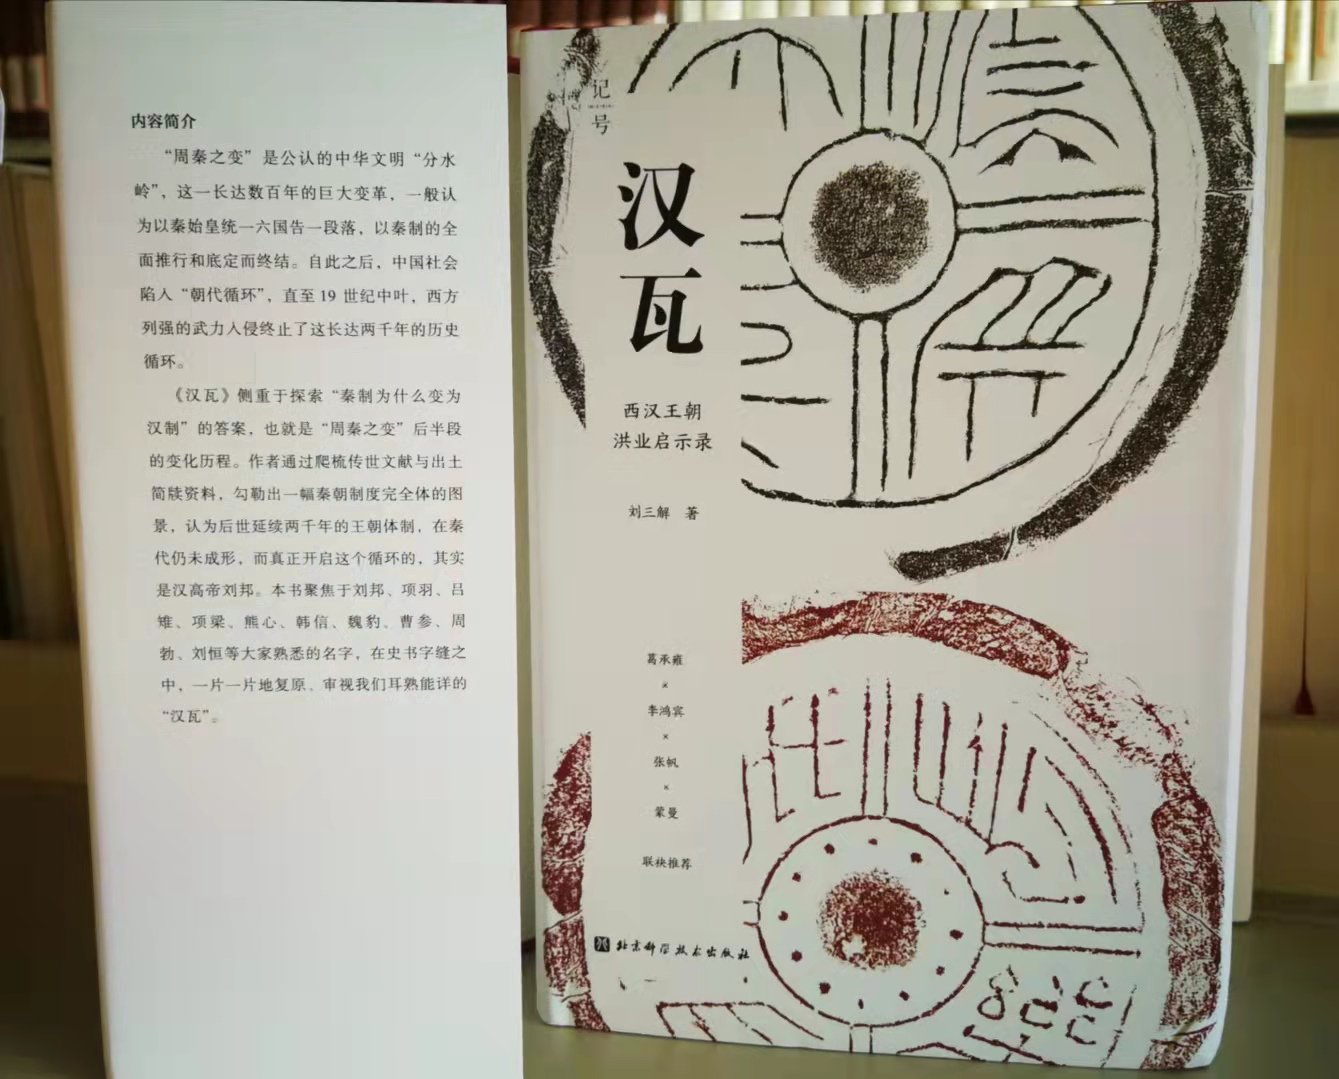 内容简介
“周秦之变”是公认的中华文明“分水
岭”，这一长达数百年的巨大变革，一般认
为以秦始皇统一六国告一段落，以秦制的全
面推行和底定而终结。自此之后，中国社会
陷入“朝代循环”，直至 19 世纪中叶，西方
列强的武力入侵终止了这长达两千年的历史
循环。
《汉瓦》侧重于探索“秦制为什么变为
汉制”的答案，也就是“周秦之变”后半段
的变化历程。作者通过爬梳传世文献与出土
简牍资料，勾勒出一幅秦朝制度完全体的图
景，认为后世延续两千年的王朝体制，在秦
代仍未成形，而真正开启这个循环的，其实
是汉高帝刘邦。本书聚焦于刘邦、项羽、吕
雉、项梁、熊心、韩信、魏豹、曹参、周
勃、刘恒等大家熟悉的名字，在史书字缝之
中，一片一片地复原、审视我们耳熟能详的
“汉瓦”。
记
号
汉
瓦
西汉王朝
洪业启示录
刘三解 著
葛承雍
×
李鸿宾
×
张帆
×
蒙曼
联袂推荐
北京科学技术出版社